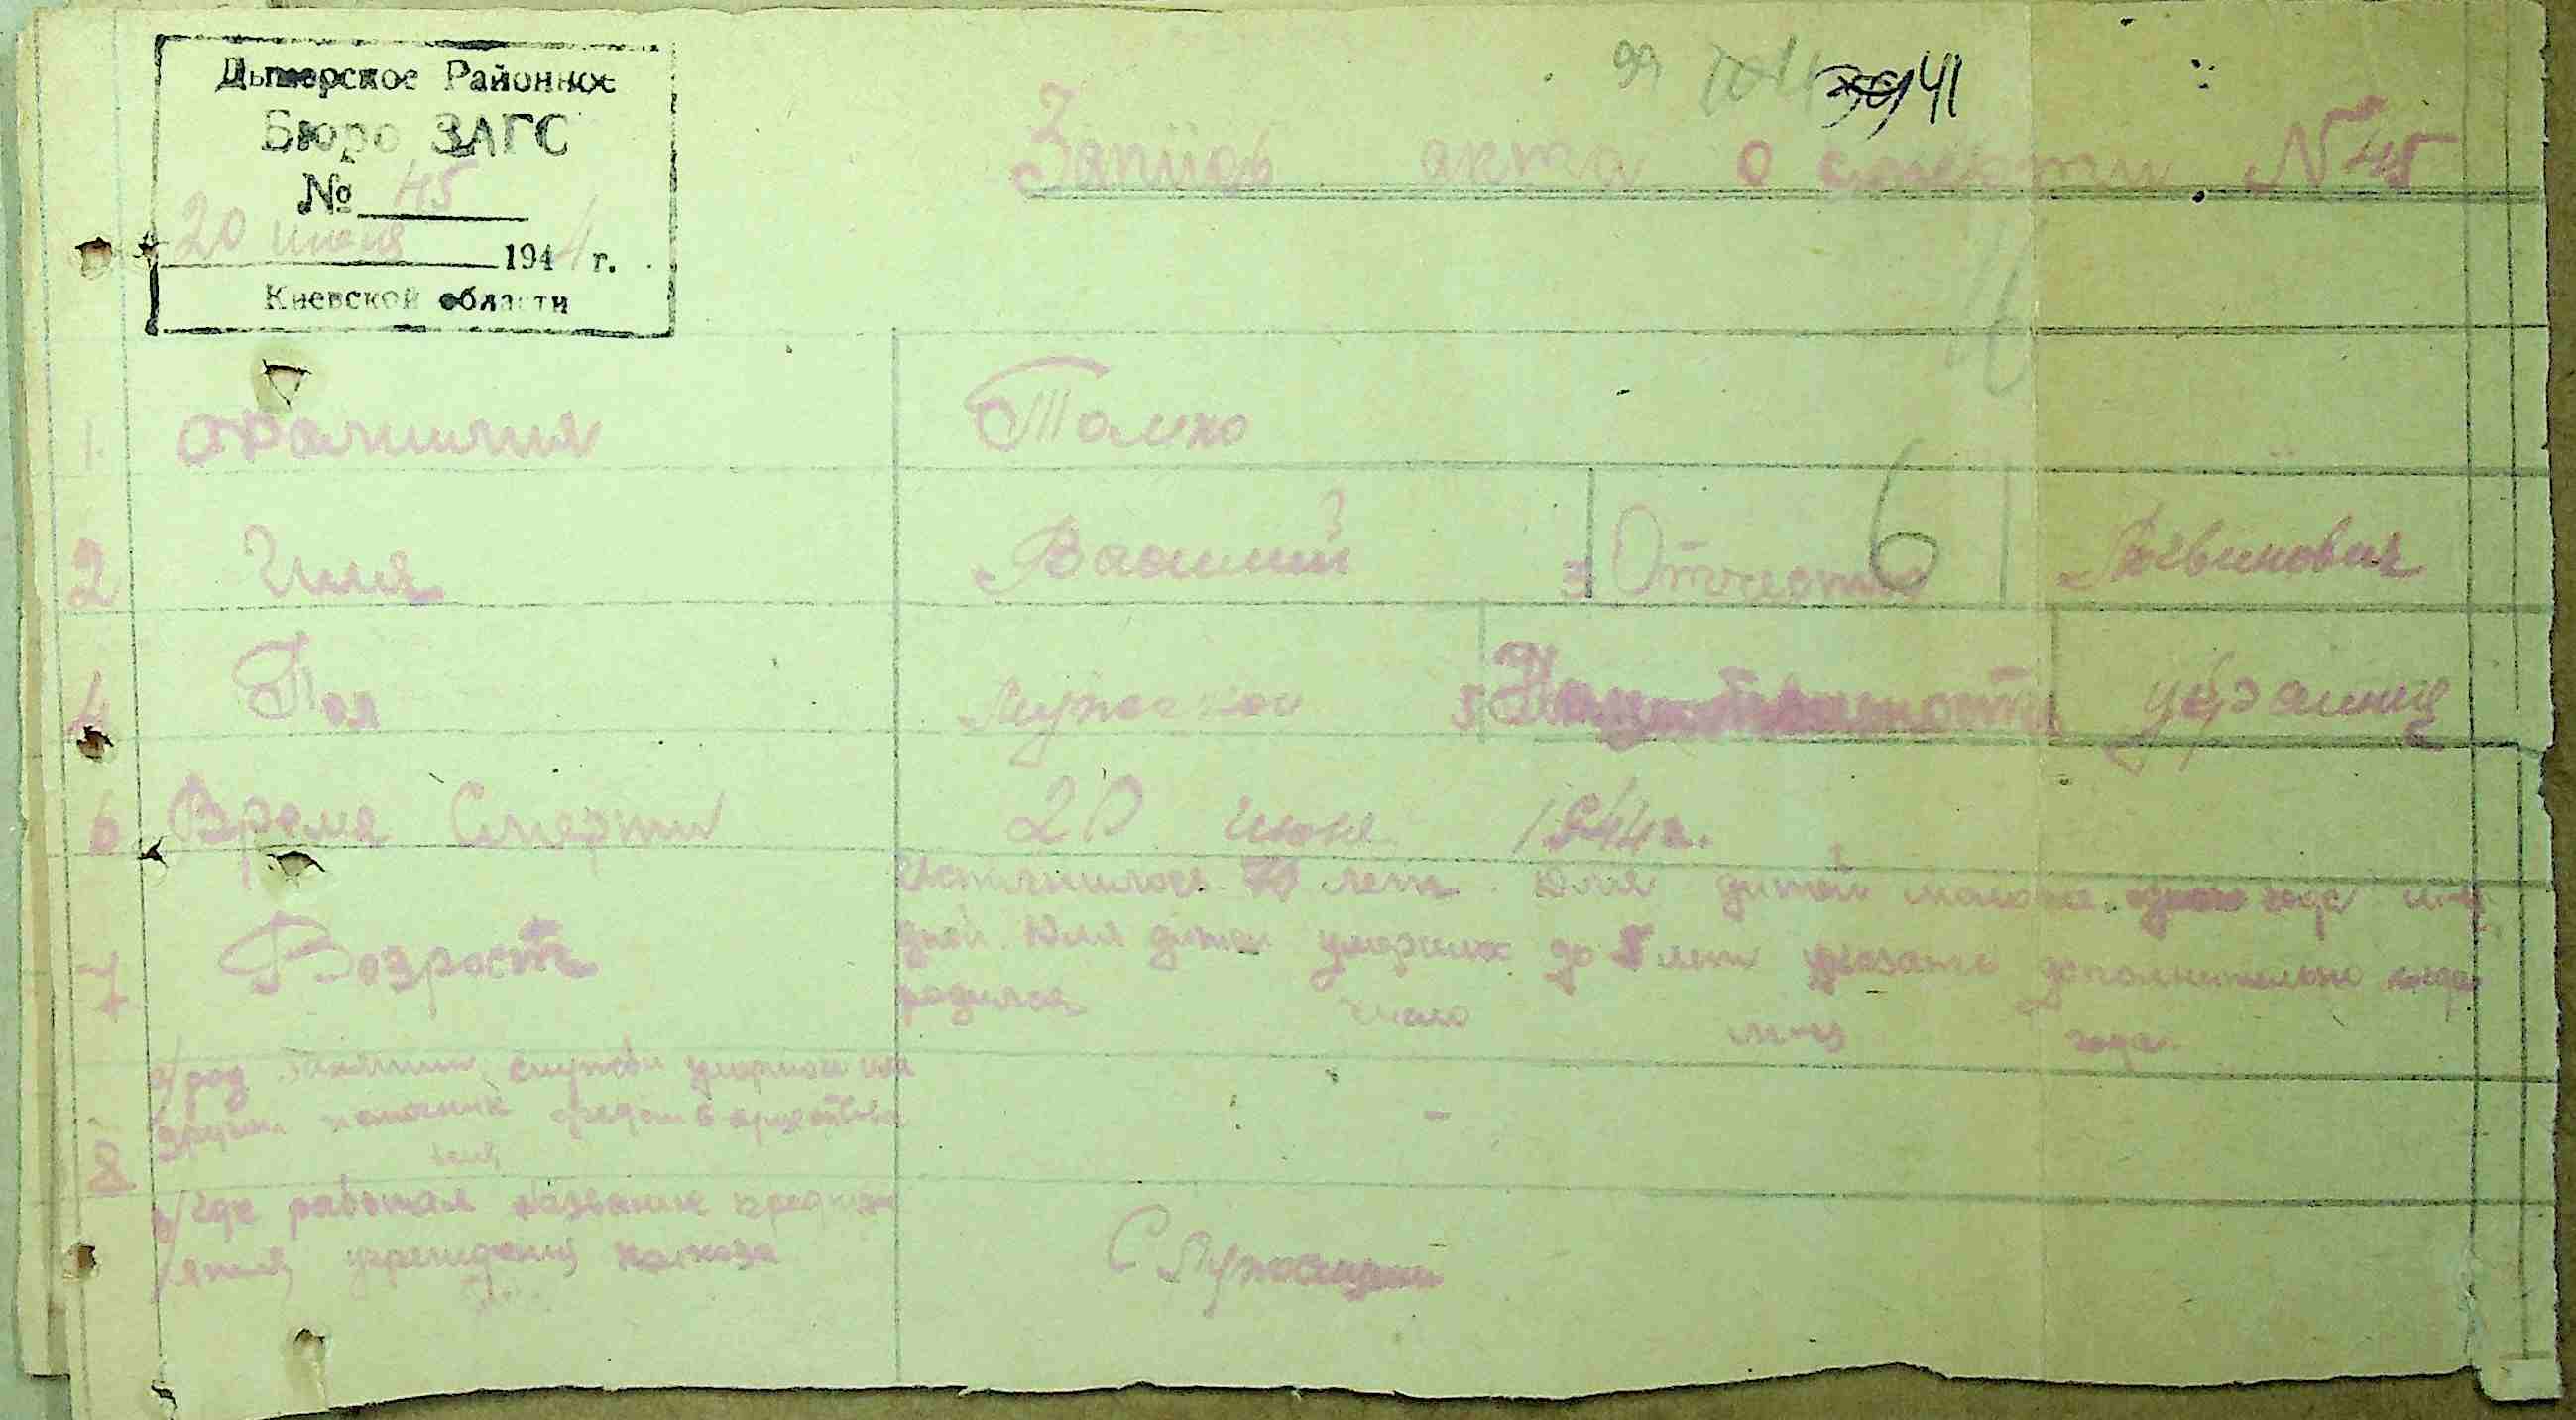 Дымерское Районное
Бюро ЗАГС
№ 45
20 июня 1944 г.
Киевской области
99 41
Запись акта о смерти N 45
1. Фамилия Томко
2 Имя Василий 3 Отчество
6
4 Пол Мужской 5 украинец
6 Время Смерти 20 июня 1944 г.
7 Возраст
Исполнилось 70 лет. Для дитей моложе одного года м-ц
дней. Для дитей умерших до 5 лет указать дополнительно когда
родился число м-ц года
8
а/ род занятий, службы умершего или
других источник средств существо
вания
-
в/ где работал название предпри
ятия учреждения колхоза